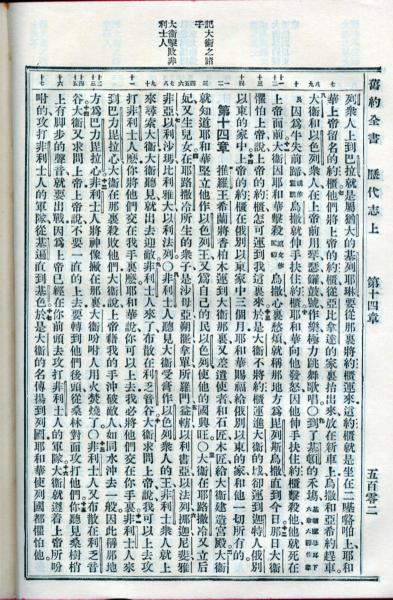 舊約全書 歷代志上 第十四章 五百零二
列衆人上到巴拉就是屬猶大的基列耶琳要從那裏將約櫃運來這約櫃就是坐在二上耶和
華上帝留名的約櫃他們將上帝的約櫃從亞比拿達的家裏抬出來放在新車上烏撒和亞希約趕車
大衛和以色列衆人在上帝前用琴瑟鑼鼓號作樂極力跳舞歌唱〇到了基頓的禾塲
因爲牛失前蹄烏撒就伸手扶住約櫃耶和華向他發怒因他伸手扶住約櫃擊殺他他就死在
上帝面前大衛因耶和華擊殺烏撒心裏愁煩就稱那地方爲毘列斯烏撒直到今日那日大衛
懼怕上帝說上帝的約櫃怎可運到我這裏來於是大衛不將約櫃運進大衛的城卻運到迦特人俄別
以東的家中上帝的約櫃在俄別以東家中三個月耶和華賜福給俄別以東的家和他一切所有的
第十四章 推羅王希蘭將香柏木運到大衛那裏又差遣使者和石匠木匠給大衛建造宮殿大衛
就知道耶和華堅立他作以色列王又爲自己的民以色列使他的國興旺〇大衛在耶路撒冷又立后
妃又生兒女在耶路撒冷所生的衆子是沙母亞朔罷拿單所羅門益轄以利書亞以法列挪迦尼斐雅
非亞以利沙瑪比利雅大以利法列〇非利士人聽見大衛受膏作以色列衆人的王非利士衆人就上
來尋索大衛大衛聽見就出去迎敵非利士人來了布散在利乏音谷大衛求問上帝說我可以上去攻
打非利士人麽你將他們交在我手裏麽耶和華說你可以上去我必將他們交在你手裏非利士人來
到巴力毘拉心大衛在那裏殺敗他們大衛說上帝藉我的手沖破敵人如同水沖去一般因此稱那地
方爲巴力毘拉心非利士人將神像撇在那裏大衛吩咐人用火焚燒了〇非利士人又布散在利乏音
谷大衛又求問上帝上帝說不要一直的上去要轉到他們後頭從桑林對面攻打他們你聽見桑樹梢
上有脚步的聲音就要出戰因爲上帝已經在你前頭去攻打非利士人的軍隊大衛就遵着上帝所吩
咐的攻打非利士人的軍隊從基遍直到基色於是大衛的名傳揚到列國耶和華使列國都懼怕他
記大衛之諸
子
大衛擊敗非
利士人